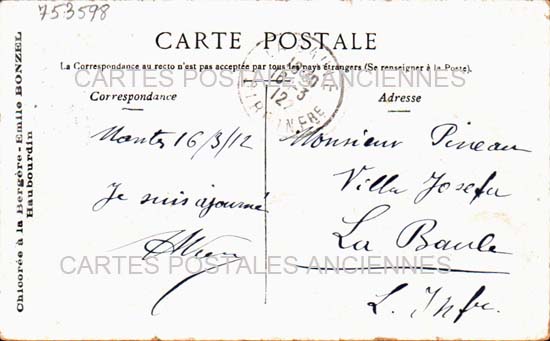 753598
CARTE POSTALE
La Correspondance au recto n'est pas acceptée par tous les pays étrangers (Se renseigner à la Poste).
CARTES POSTALES ANCIENNES
Correspondance
Adresse
Nantes 16/3/12
Je suis ajourné
Monsieur Pineau
Villa Josefa
La Baule
L. Infre
CARTES POSTALES ANCIENNES
Chicorée à la Bergère - Emile BONZEL
Haubourdin